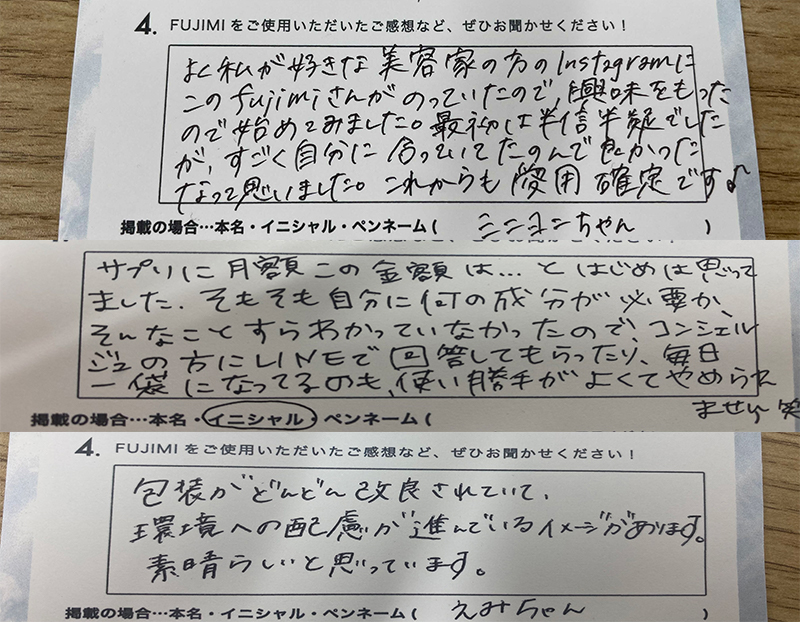 4. FUJIMIをご使用いただいたご感想など、ぜひお聞かせください！
よく私が好きな美容家の方のInstagramに
このfujimiさんがのっていたので、興味をもった
ので始めてみました。最初は半信半疑でした
が、すごく自分に合っていてたのんで良かった
なって思いました。これからも愛用確定です♪
掲載の場合…本名・イニシャル・ペンネーム( ミニヨンちゃん )
サプリに月額この金額は…とはじめは思って
ました。そもそも自分に何の成分が必要か、
そんなことすらわかっていなかったので、コンシェル
ジュの方にLINEで回答してもらったり、毎日
一袋になってるのも、使い勝手がよくてやめられ
ません笑
掲載の場合…本名・イニシャル・ペンネーム(
4. FUJIMIをご使用いただいたご感想など、ぜひお聞かせください！
包装がどんどん改良されていて、
環境への配慮が進んでいるイメージがあります。
素晴らしいと思っています。
掲載の場合…本名・イニシャル・ペンネーム( えみちゃん )